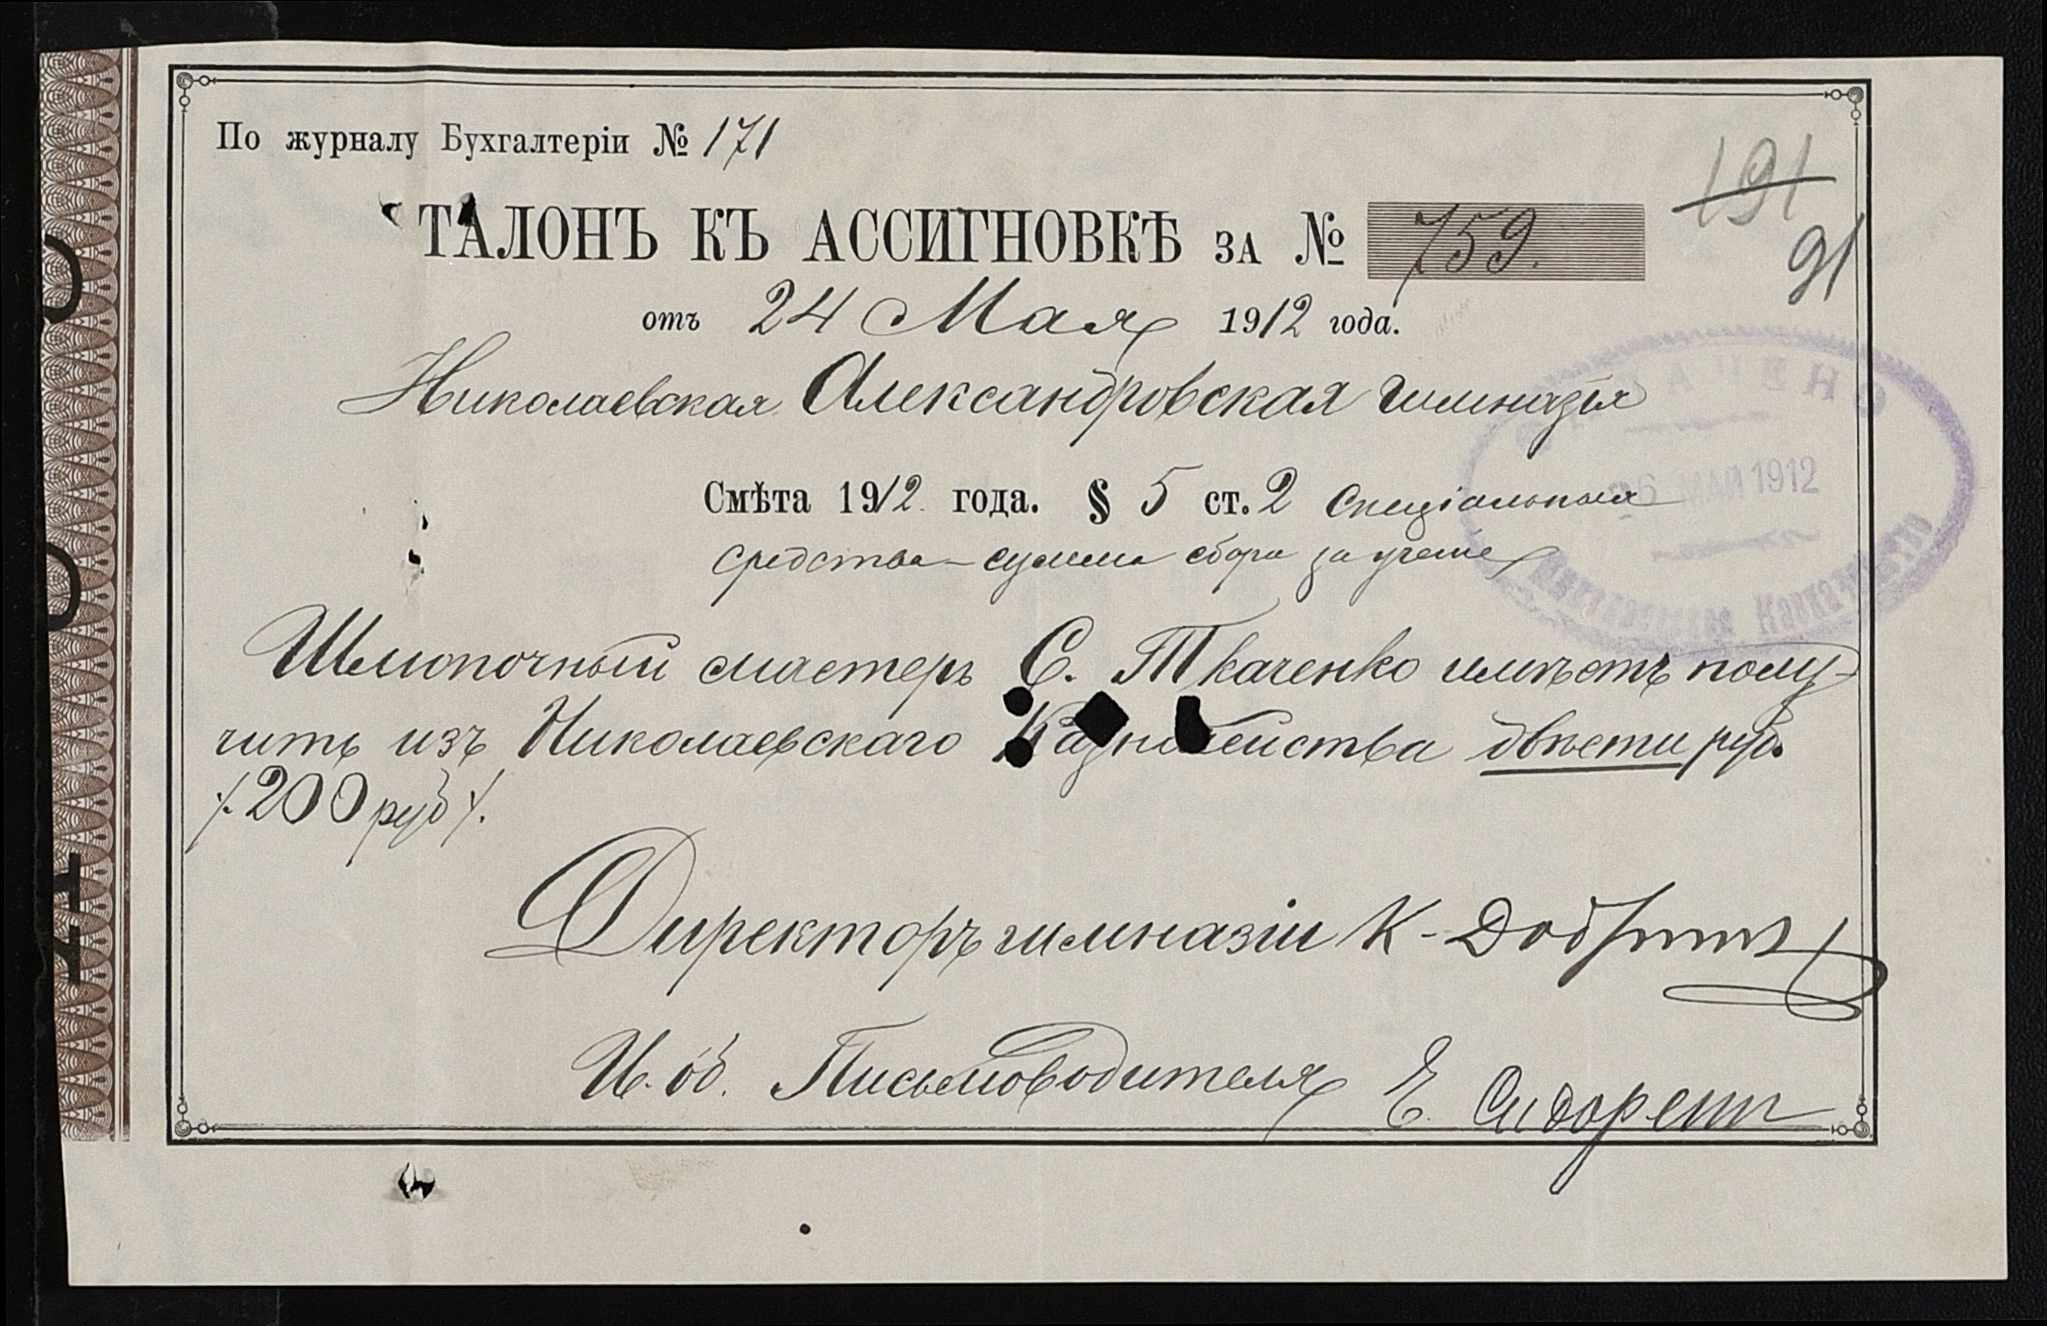 По журналу Бухгалтеріи № 171
191
ТАЛОНЪ КЪ АССИГНОВКѢ ЗА № 759.
91
отъ 24 Мая 1912 года.
Николаевская Александровская гимназія
Смѣта 1912 года. § 5 ст. 2 Спеціальныя
средства – суммы сбора за ученіе
26 МАЙ 1912
Шлюпочный мастеръ С. Ткаченко имѣетъ полу-
чить изъ Николаевскаго Казначейства двѣсти руб.
/. 200 руб /.
Директоръ гимназіи К.
И. об. Письмоводителя Е.